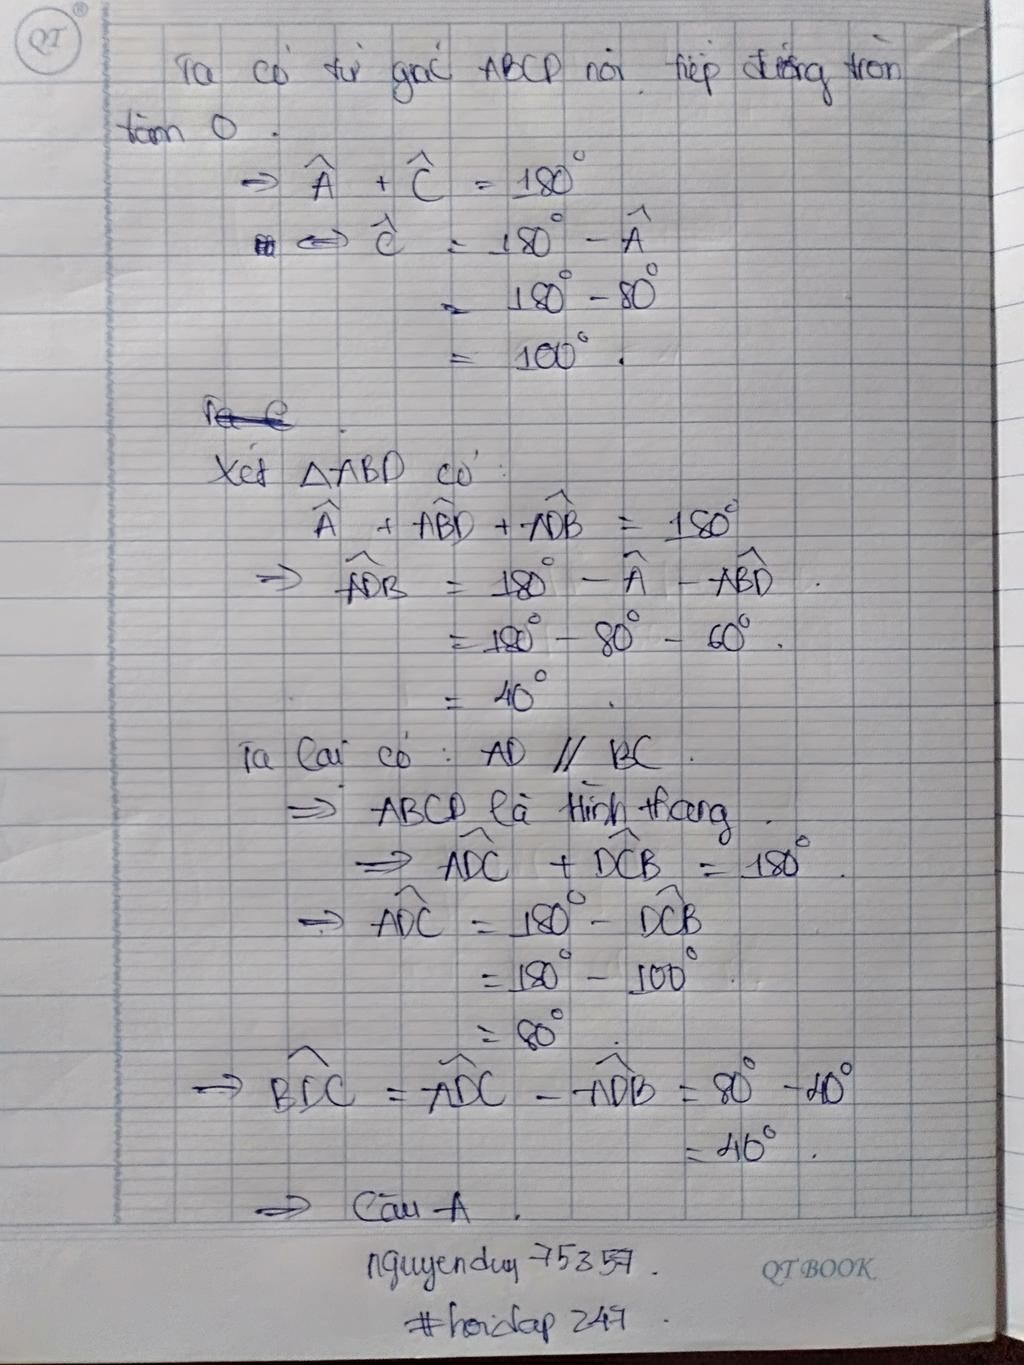 QT
Ta có tứ giác ABCD nội tiếp đường tròn
tâm O.
=> Â + Ĉ = 180°
<=> Ĉ = 180° - Â
= 180° - 80°
= 100°.
Xét △ABD có:
Â + ABD̂ + ADB̂ = 180°
=> ADB̂ = 180° - Â - ABD̂.
= 180° - 80° - 60°.
= 40°.
Ta lại có: AD // BC.
=> ABCD là Hình thang.
=> ADĈ + DCB̂ = 180°.
=> ADĈ = 180° - DCB̂
= 180° - 100°.
= 80°.
=> BDĈ = ADĈ - ADB̂ = 80° - 40°
= 40°.
=> Câu A.
nguyenduy75357.
QT BOOK
#hoidap247.